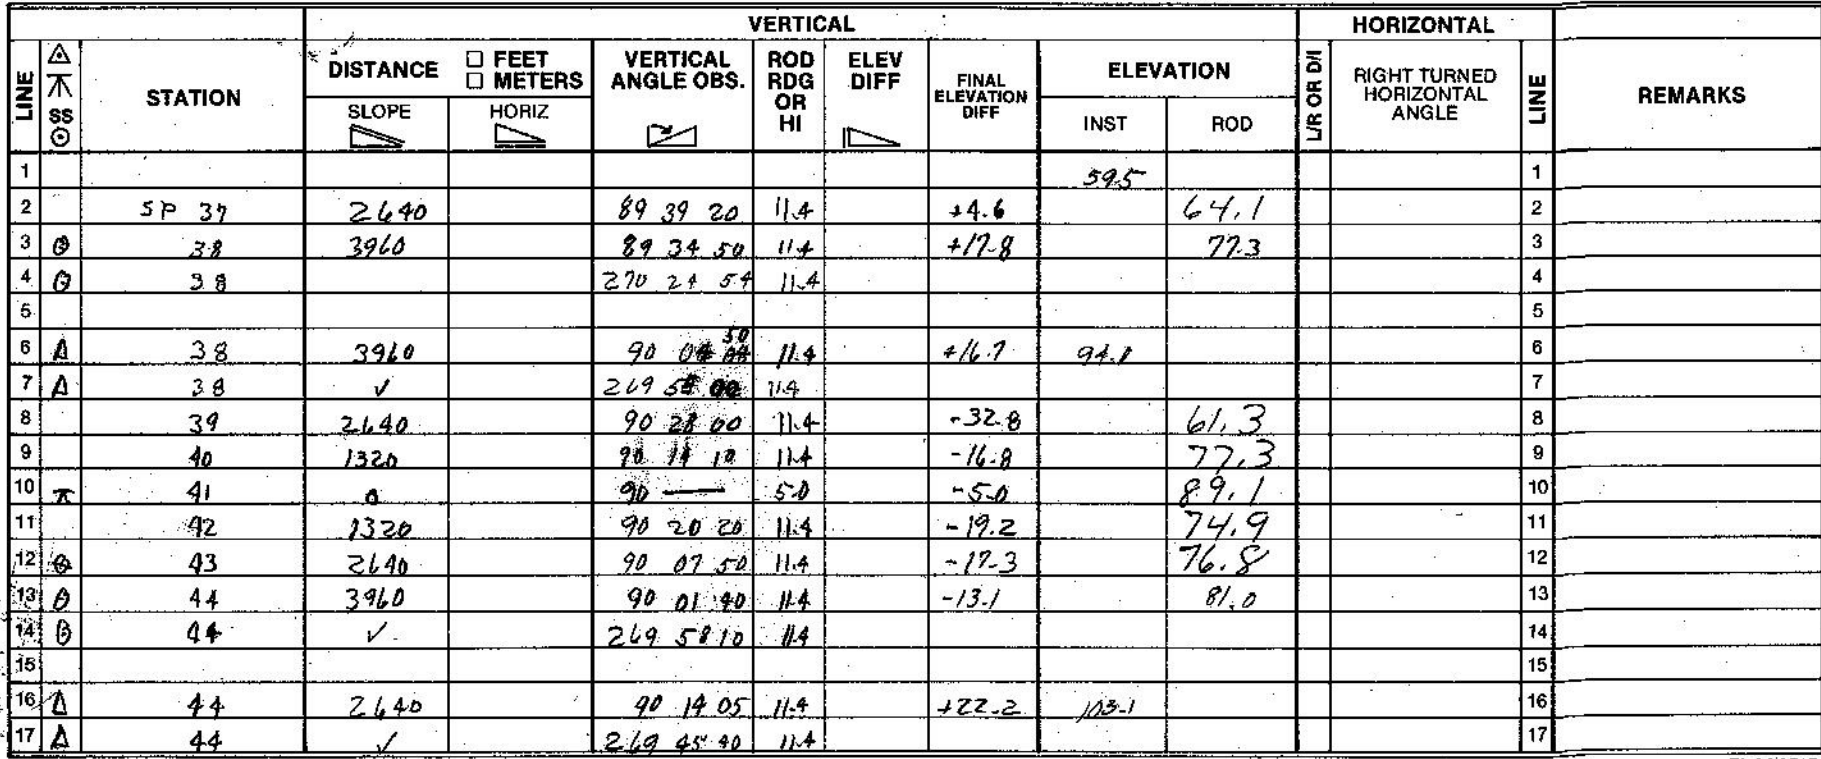 VERTICAL HORIZONTAL
LINE SS STATION DISTANCE □ FEET □ METERS VERTICAL ANGLE OBS. ROD RDG OR HI ELEV DIFF FINAL ELEVATION DIFF ELEVATION L/R OR D/I RIGHT TURNED HORIZONTAL ANGLE LINE REMARKS
SLOPE HORIZ INST ROD
1 59.5 1
2 SP 37 2640 89 39 20 11.4 +4.6 64.1 2
3 38 3960 89 34 50 11.4 +17.8 77.3 3
4 38 270 24 54 11.4 4
5 5
6 38 3960 90 04 50 11.4 +16.7 94.1 6
7 38 ✓ 269 11.4 7
8 39 2640 90 28 00 11.4 -32.8 61.3 8
9 40 1320 90 14 10 11.4 -16.8 77.3 9
10 41 0 90 — 5.0 -5.0 89.1 10
11 42 1320 90 20 20 11.4 -19.2 74.9 11
12 43 2640 90 07 50 11.4 -17.3 76.8 12
13 44 3960 90 01 40 11.4 -13.1 81.0 13
14 44 ✓ 269 58 10 11.4 14
15 15
16 44 2640 90 14 05 11.4 +22.2 103.1 16
17 44 ✓ 269 45 40 11.4 17